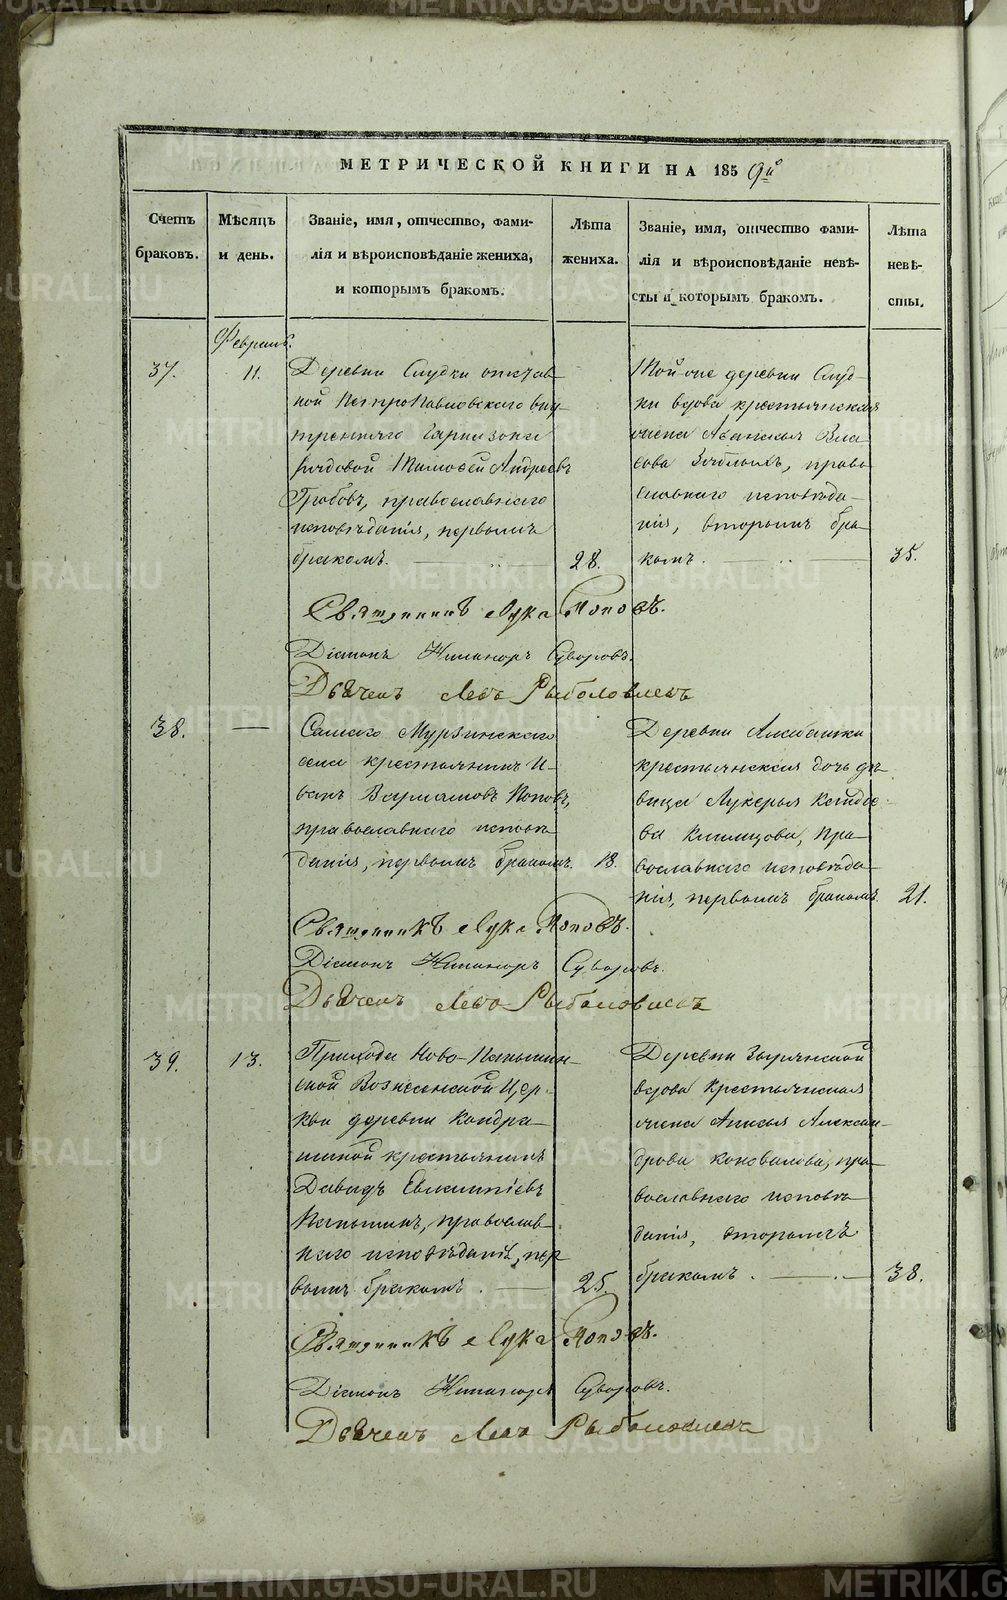 МЕТРИЧЕСКОЙ КНИГИ НА 1859й
Счетъ браковъ.
Мѣсяцъ и день.
Званіе, имя, отчество, фами-
лія и вѣроисповѣданіе жениха,
и которымъ бракомъ.
Лѣта жениха.
Званіе, имя, отчество фами-
лія и вѣроисповѣданіе невѣ-
сты и которымъ бракомъ.
Лѣта невѣ-
сты.
Февраль.
37.
11.
Деревни Слудки отстав-
ной Петропавловскаго вну-
тренняго Гарнизона
рядовой Тимофей Андреевъ
Грабовъ, православнаго
исповѣданія, первымъ
бракомъ.
28.
Той-же деревни Слуд-
ки вдова крестьянская
жена Афанасья Вла-
сова, право-
славнаго исповѣда-
нія, вторымъ бра-
комъ.
35.
Священникъ Лука Поповъ.
Діаконъ Никаноръ Суворовъ.
Дьячекъ Левъ Рыболовлевъ
38.
—
Самаго Мурзинскаго
села крестьянинъ И-
ванъ Варламовъ Поповъ,
православнаго исповѣ-
данія, первымъ бракомъ.
18.
Деревни Алабашки
крестьянская дочь дѣ-
вица Лукерья
ва, пра-
вославнаго исповѣда-
нія, первымъ бракомъ.
21.
Священникъ Лука Поповъ.
Діаконъ Никаноръ Суворовъ.
Дьячекъ Левъ Рыболовлевъ
39.
13.
Прихода Ново-Паньшин-
ской Вознесенской Цер-
кви деревни Кондра-
шиной крестьянинъ
Давидъ Евлампіевъ
Паньшинъ, православ-
наго исповѣданія, пер
вымъ бракомъ.
25.
Деревни Зырянской
вдова крестьянская
жена Анисья Алексан-
дрова Коновалова, пра-
вославнаго исповѣ
данія, вторымъ
бракомъ.
38.
Священникъ Лука Поповъ.
Діаконъ Никаноръ Суворовъ.
Дьячекъ Левъ Рыболовлевъ
METRIKI.GASO-URAL.RU